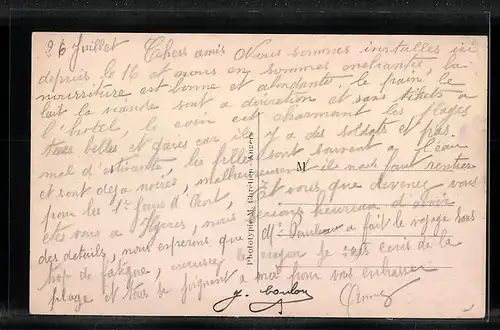 26 Juillet Chers amis Nous sommes installés ici
depuis le 16 et nous en sommes enchantés, la
nourriture est bonne et abondante, le pain, le
lait la viande sont a discretion et sans tickets a
l'hotel, le coin est charmant les plages
très belles et gaies car il y a des soldats et pas
mal d'estivants, les filles sont souvent a l'eau
et sont deja noires, malheureusement il nous faut rentrer
pour les 1er jours d'Aout, Et vous que devenez vous
etes vous a Hyeres, nous serions heureux d'avoir
des details, nous esperons que Mr a fait le voyage sans
trop de fatigue, le cafe de la
plage et tous se joignent a moi pour vous embrasser
J. Coulon
M
Phototypie M. Chrétien, Angers